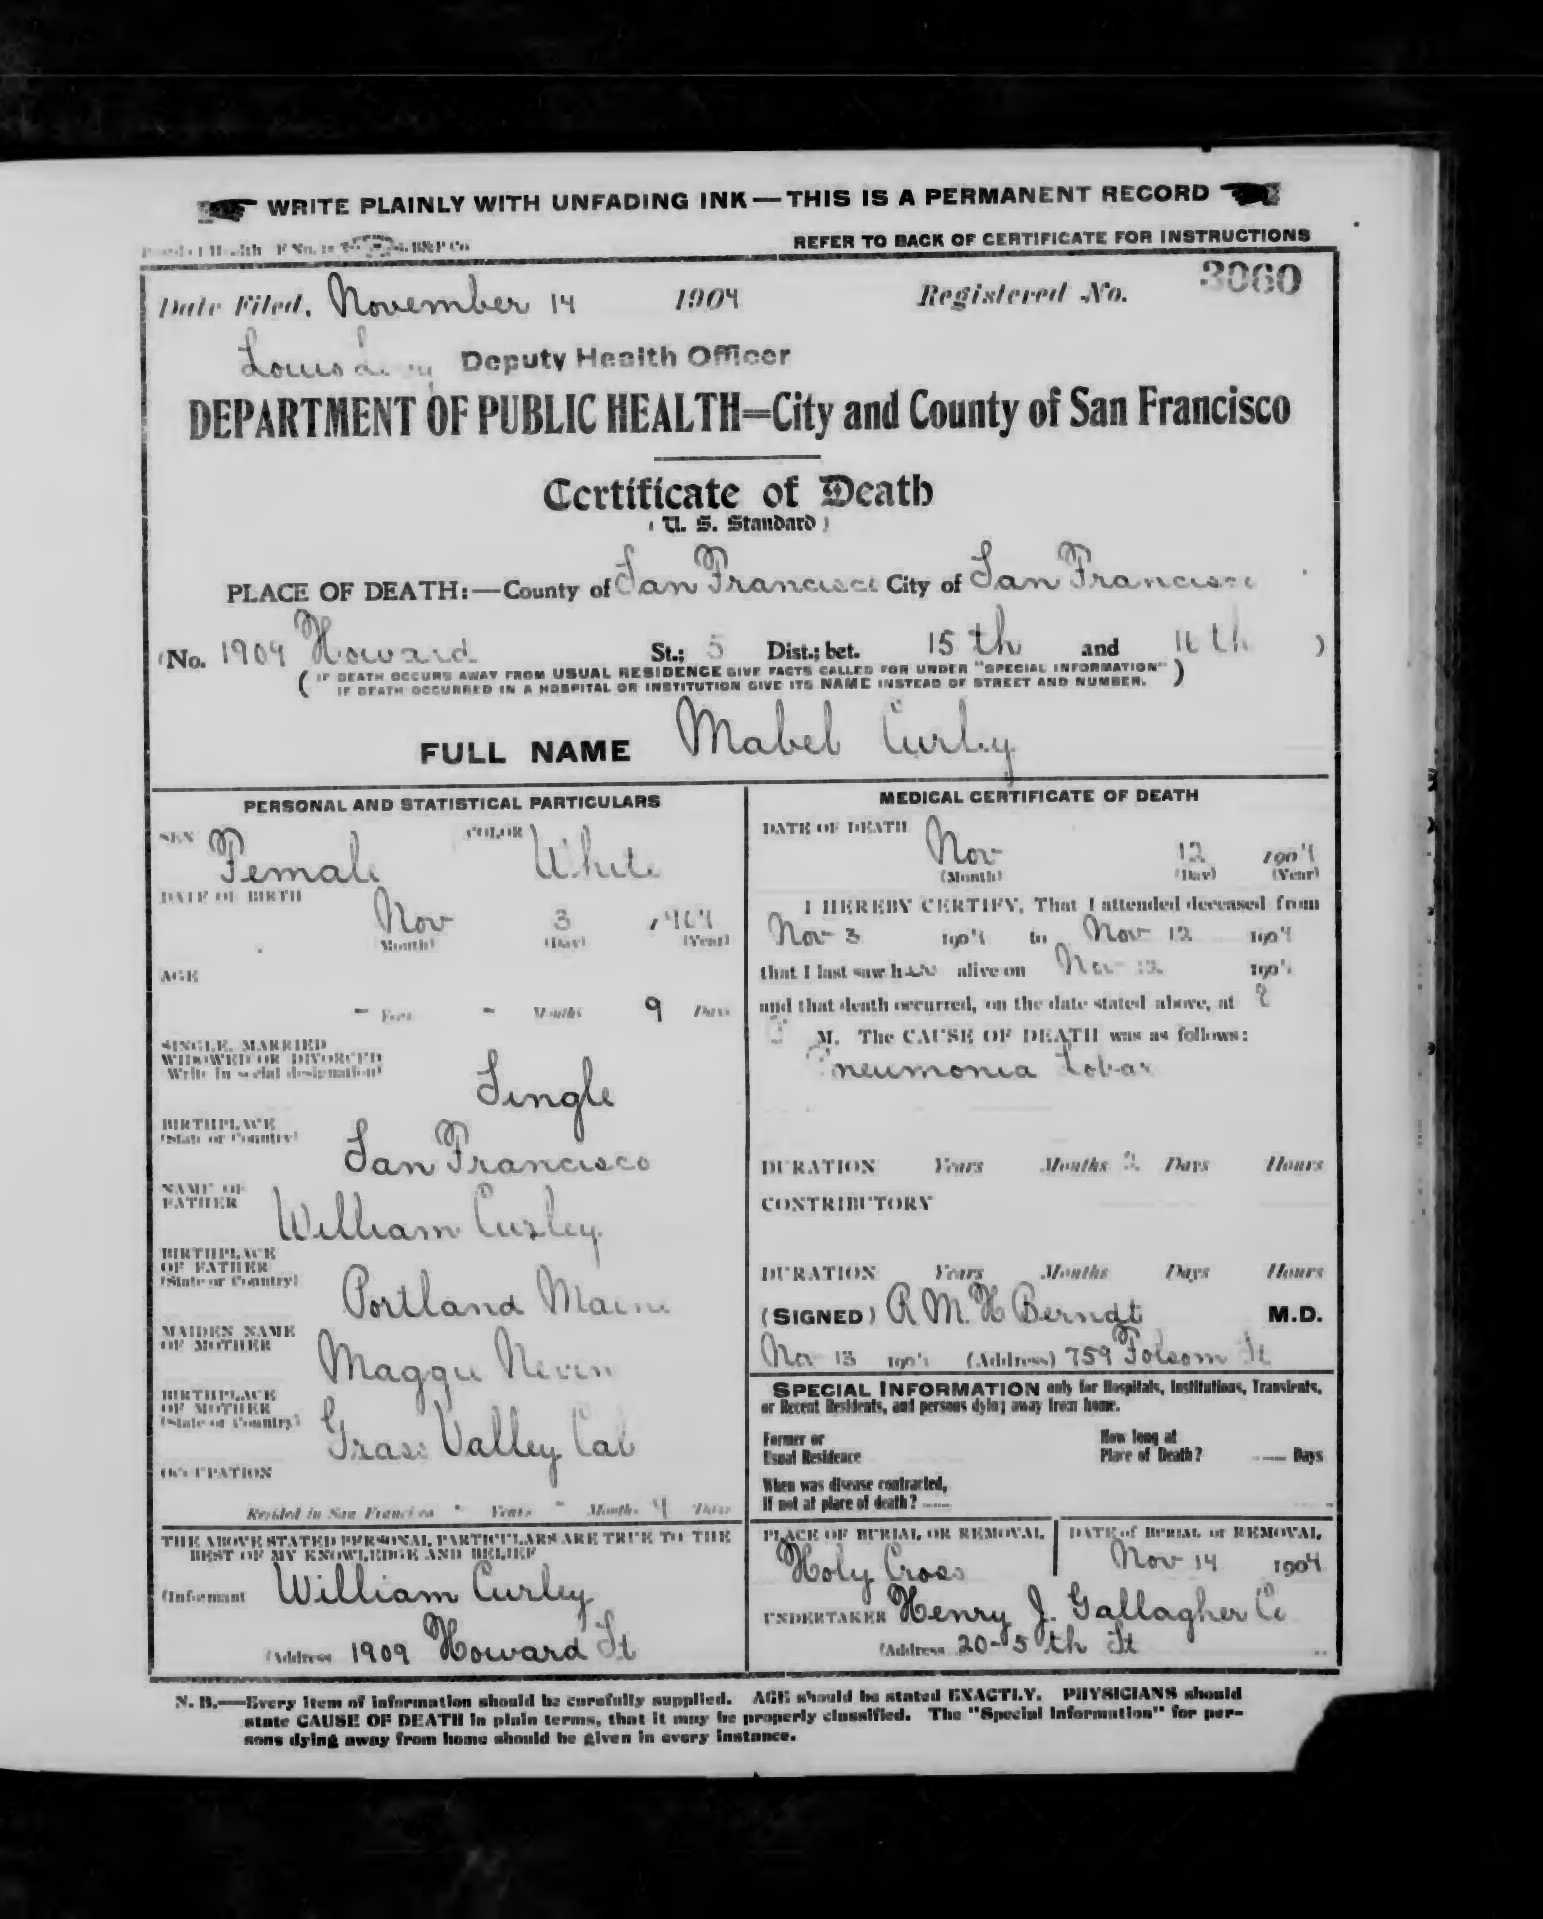 WRITE PLAINLY WITH UNFADING INK — THIS IS A PERMANENT RECORD
REFER TO BACK OF CERTIFICATE FOR INSTRUCTIONS
Date Filed, November 14 1904 Registered No. 3060
Louis Deputy Health Officer
DEPARTMENT OF PUBLIC HEALTH=City and County of San Francisco
Certificate of Death
(U. S. Standard)
PLACE OF DEATH:—County of San Francisco City of San Francisco
(No. 1909 Howard St.; 5 Dist.; bet. 15th and 16th )
( IF DEATH OCCURS AWAY FROM USUAL RESIDENCE GIVE FACTS CALLED FOR UNDER "SPECIAL INFORMATION" )
IF DEATH OCCURRED IN A HOSPITAL OR INSTITUTION GIVE ITS NAME INSTEAD OF STREET AND NUMBER.
FULL NAME Mabel Curley
PERSONAL AND STATISTICAL PARTICULARS
SEX Female COLOR White
DATE OF BIRTH
Nov 3 1904
(Month) (Day) (Year)
AGE
- Years - Months 9 Days
SINGLE, MARRIED
WIDOWED OR DIVORCED
(Write in social designation)
Single
BIRTHPLACE
(State or Country)
San Francisco
NAME OF
FATHER
William Curley
BIRTHPLACE
OF FATHER
(State or Country)
Portland Maine
MAIDEN NAME
OF MOTHER
Maggie Nevin
BIRTHPLACE
OF MOTHER
(State or Country)
Grass Valley Cal
OCCUPATION
Resided in San Francisco - Years - Months 9 Days
THE ABOVE STATED PERSONAL PARTICULARS ARE TRUE TO THE
BEST OF MY KNOWLEDGE AND BELIEF
(Informant William Curley
(Address 1909 Howard St
MEDICAL CERTIFICATE OF DEATH
DATE OF DEATH
Nov 12 1904
(Month) (Day) (Year)
I HEREBY CERTIFY, That I attended deceased from
Nov 3 1904 to Nov 12 1904
that I last saw her alive on Nov 12 1904
and that death occurred, on the date stated above, at
M. The CAUSE OF DEATH was as follows:
Pneumonia Lobar
DURATION Years Months 2 Days Hours
CONTRIBUTORY
DURATION Years Months Days Hours
(SIGNED) R M. H Berndt M.D.
Nov 13 1904 (Address) 759 Folsom St
SPECIAL INFORMATION only for Hospitals, Institutions, Transients,
or Recent Residents, and persons dying away from home.
Former or
Usual Residence
How long at
Place of Death? Days
When was disease contracted,
If not at place of death?
PLACE OF BURIAL OR REMOVAL
Holy Cross
DATE of BURIAL or REMOVAL
Nov 14 1904
UNDERTAKER Henry J. Gallagher Co
(Address 20-5th St
N. B.—Every item of information should be carefully supplied. AGE should be stated EXACTLY. PHYSICIANS should
state CAUSE OF DEATH in plain terms, that it may be properly classified. The "Special Information" for per-
sons dying away from home should be given in every instance.